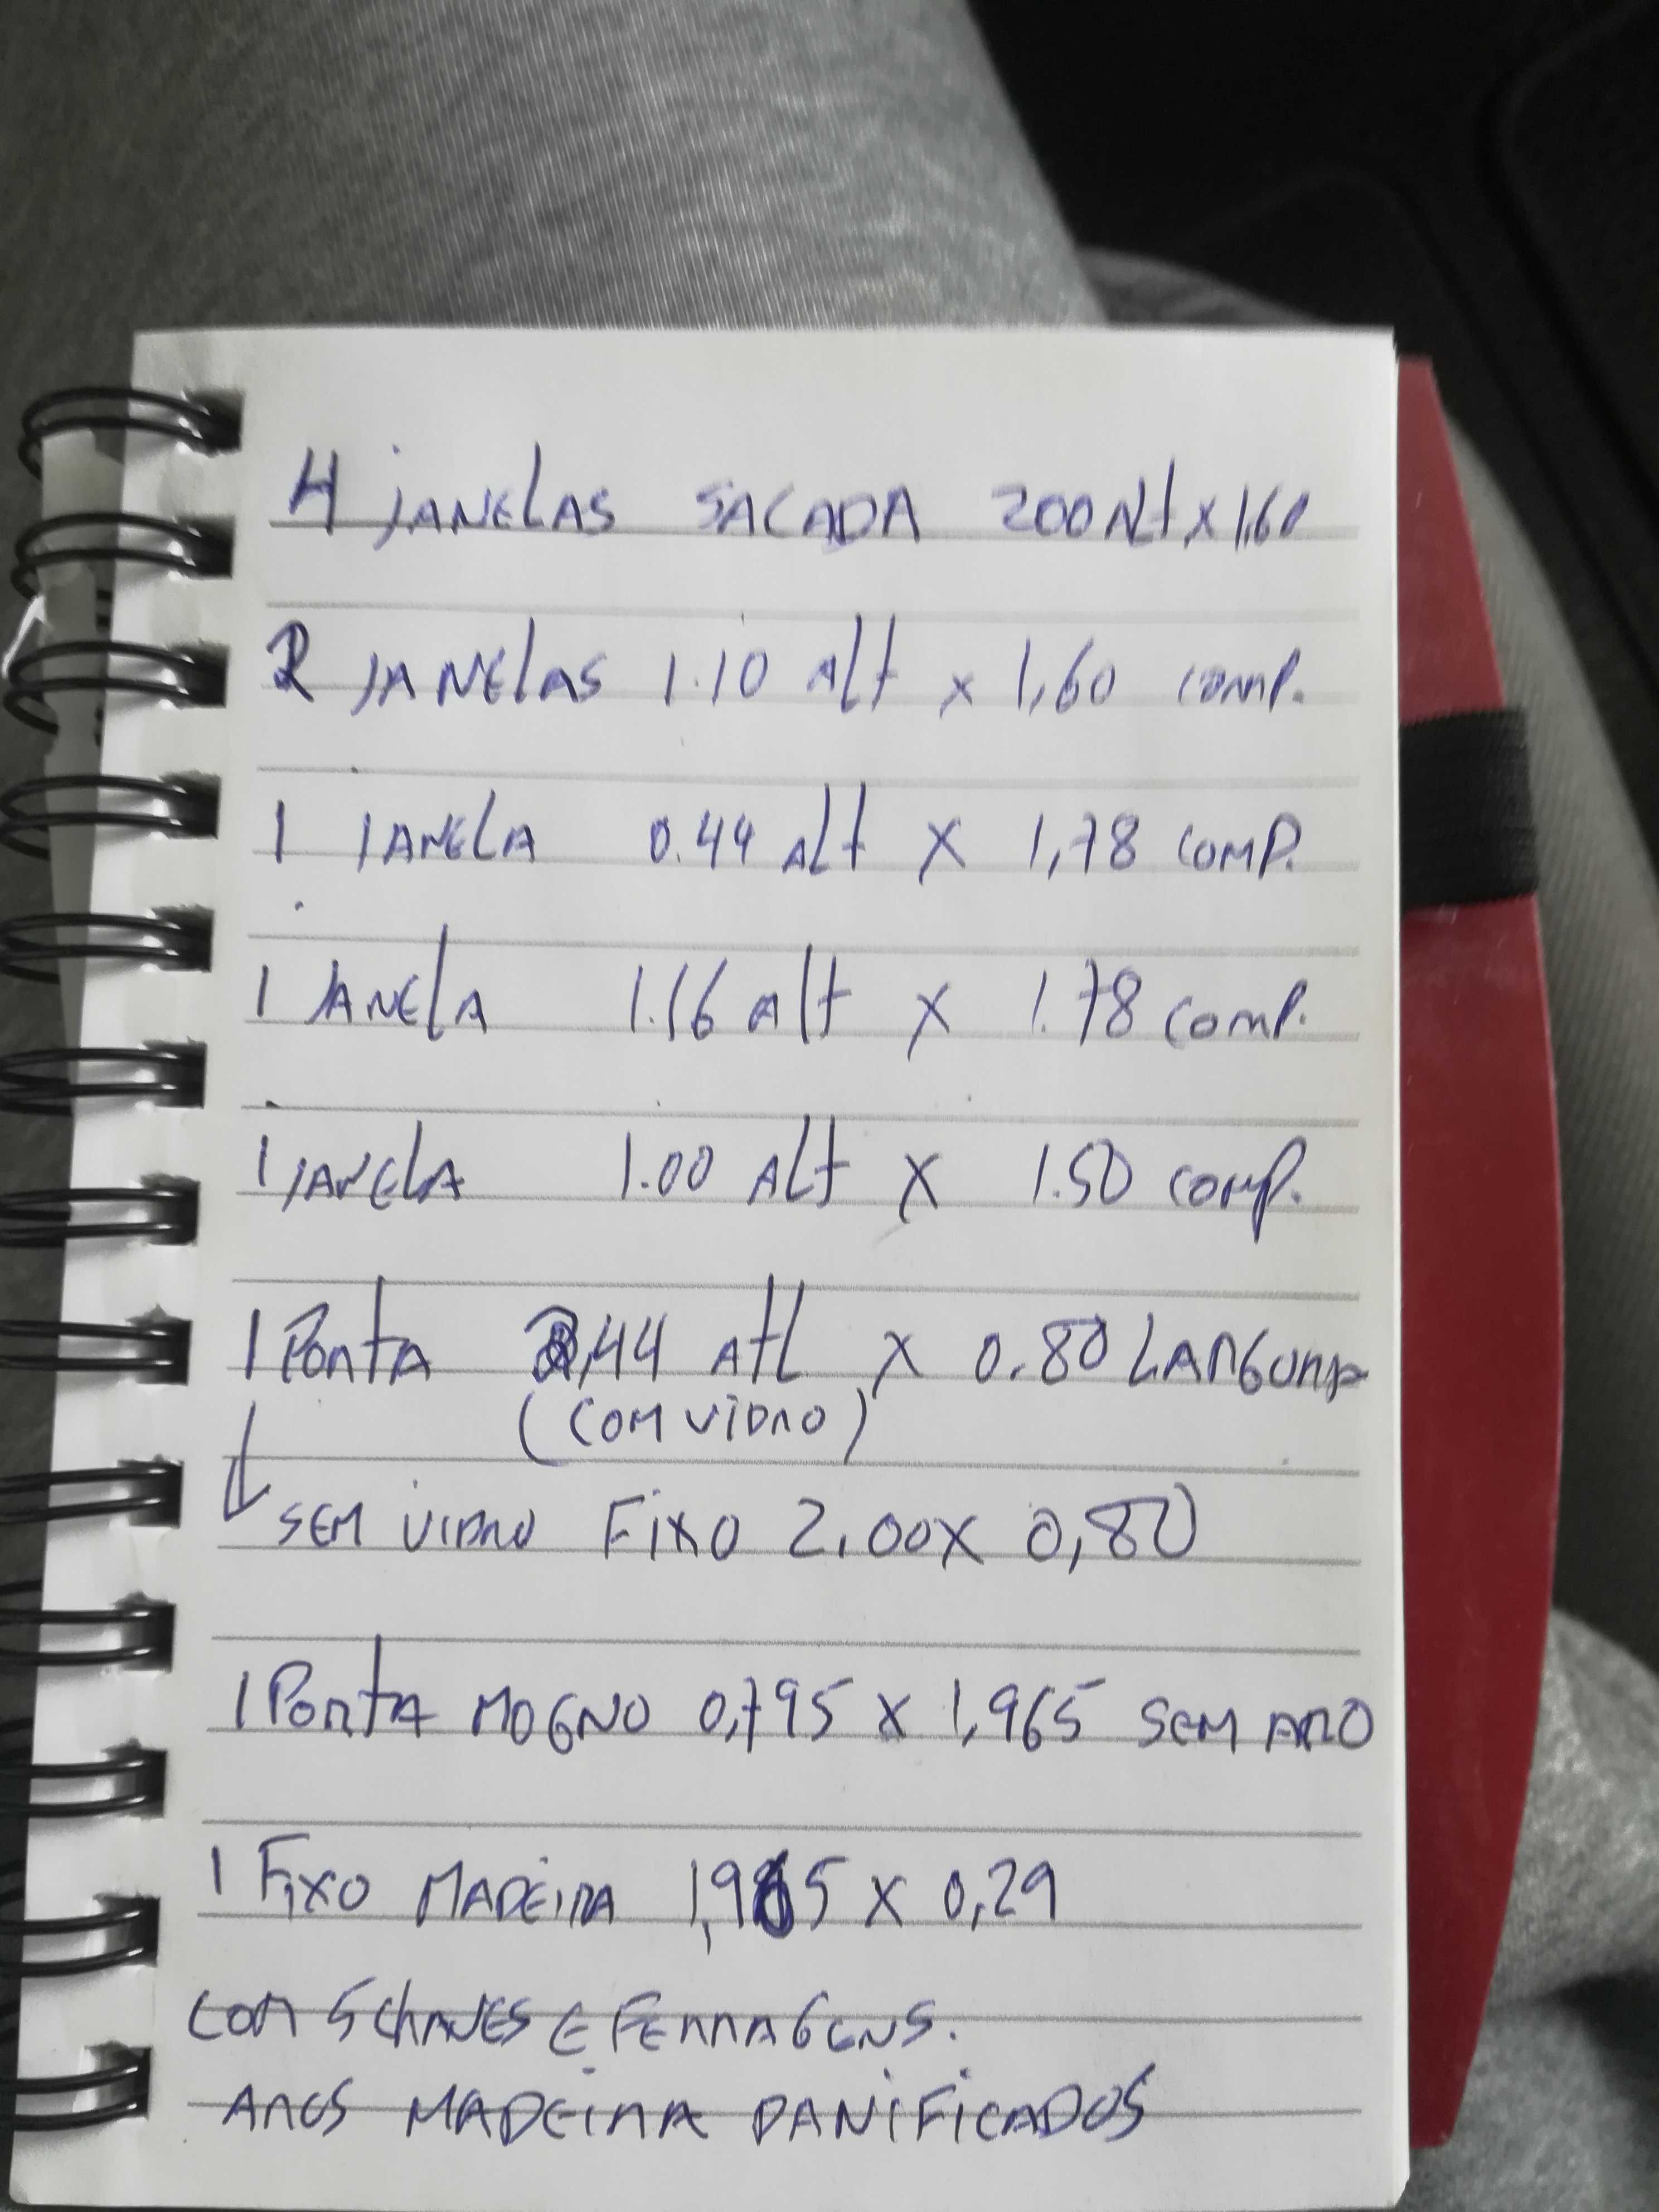 4 JANELAS SACADA 200 Alt x 1,60
2 JANELAS 1.10 Alt x 1,60 comp.
1 JANELA 0.44 Alt X 1,78 COMP.
1 JANELA 1.16 Alt X 1.78 comp.
1 JANELA 1.00 Alt X 1.50 comp.
1 Porta 2,44 Atl X 0.80 LARGURA
(COM VIDRO)
SEM VIDRO FIXO 2.00 X 0,80
1 Porta MOGNO 0,795 x 1,965 SEM ARO
1 FIXO MADEIRA 1,965 X 0,29
COM 5 CHAVES E FERRAGENS.
AROS MADEIRA DANIFICADOS